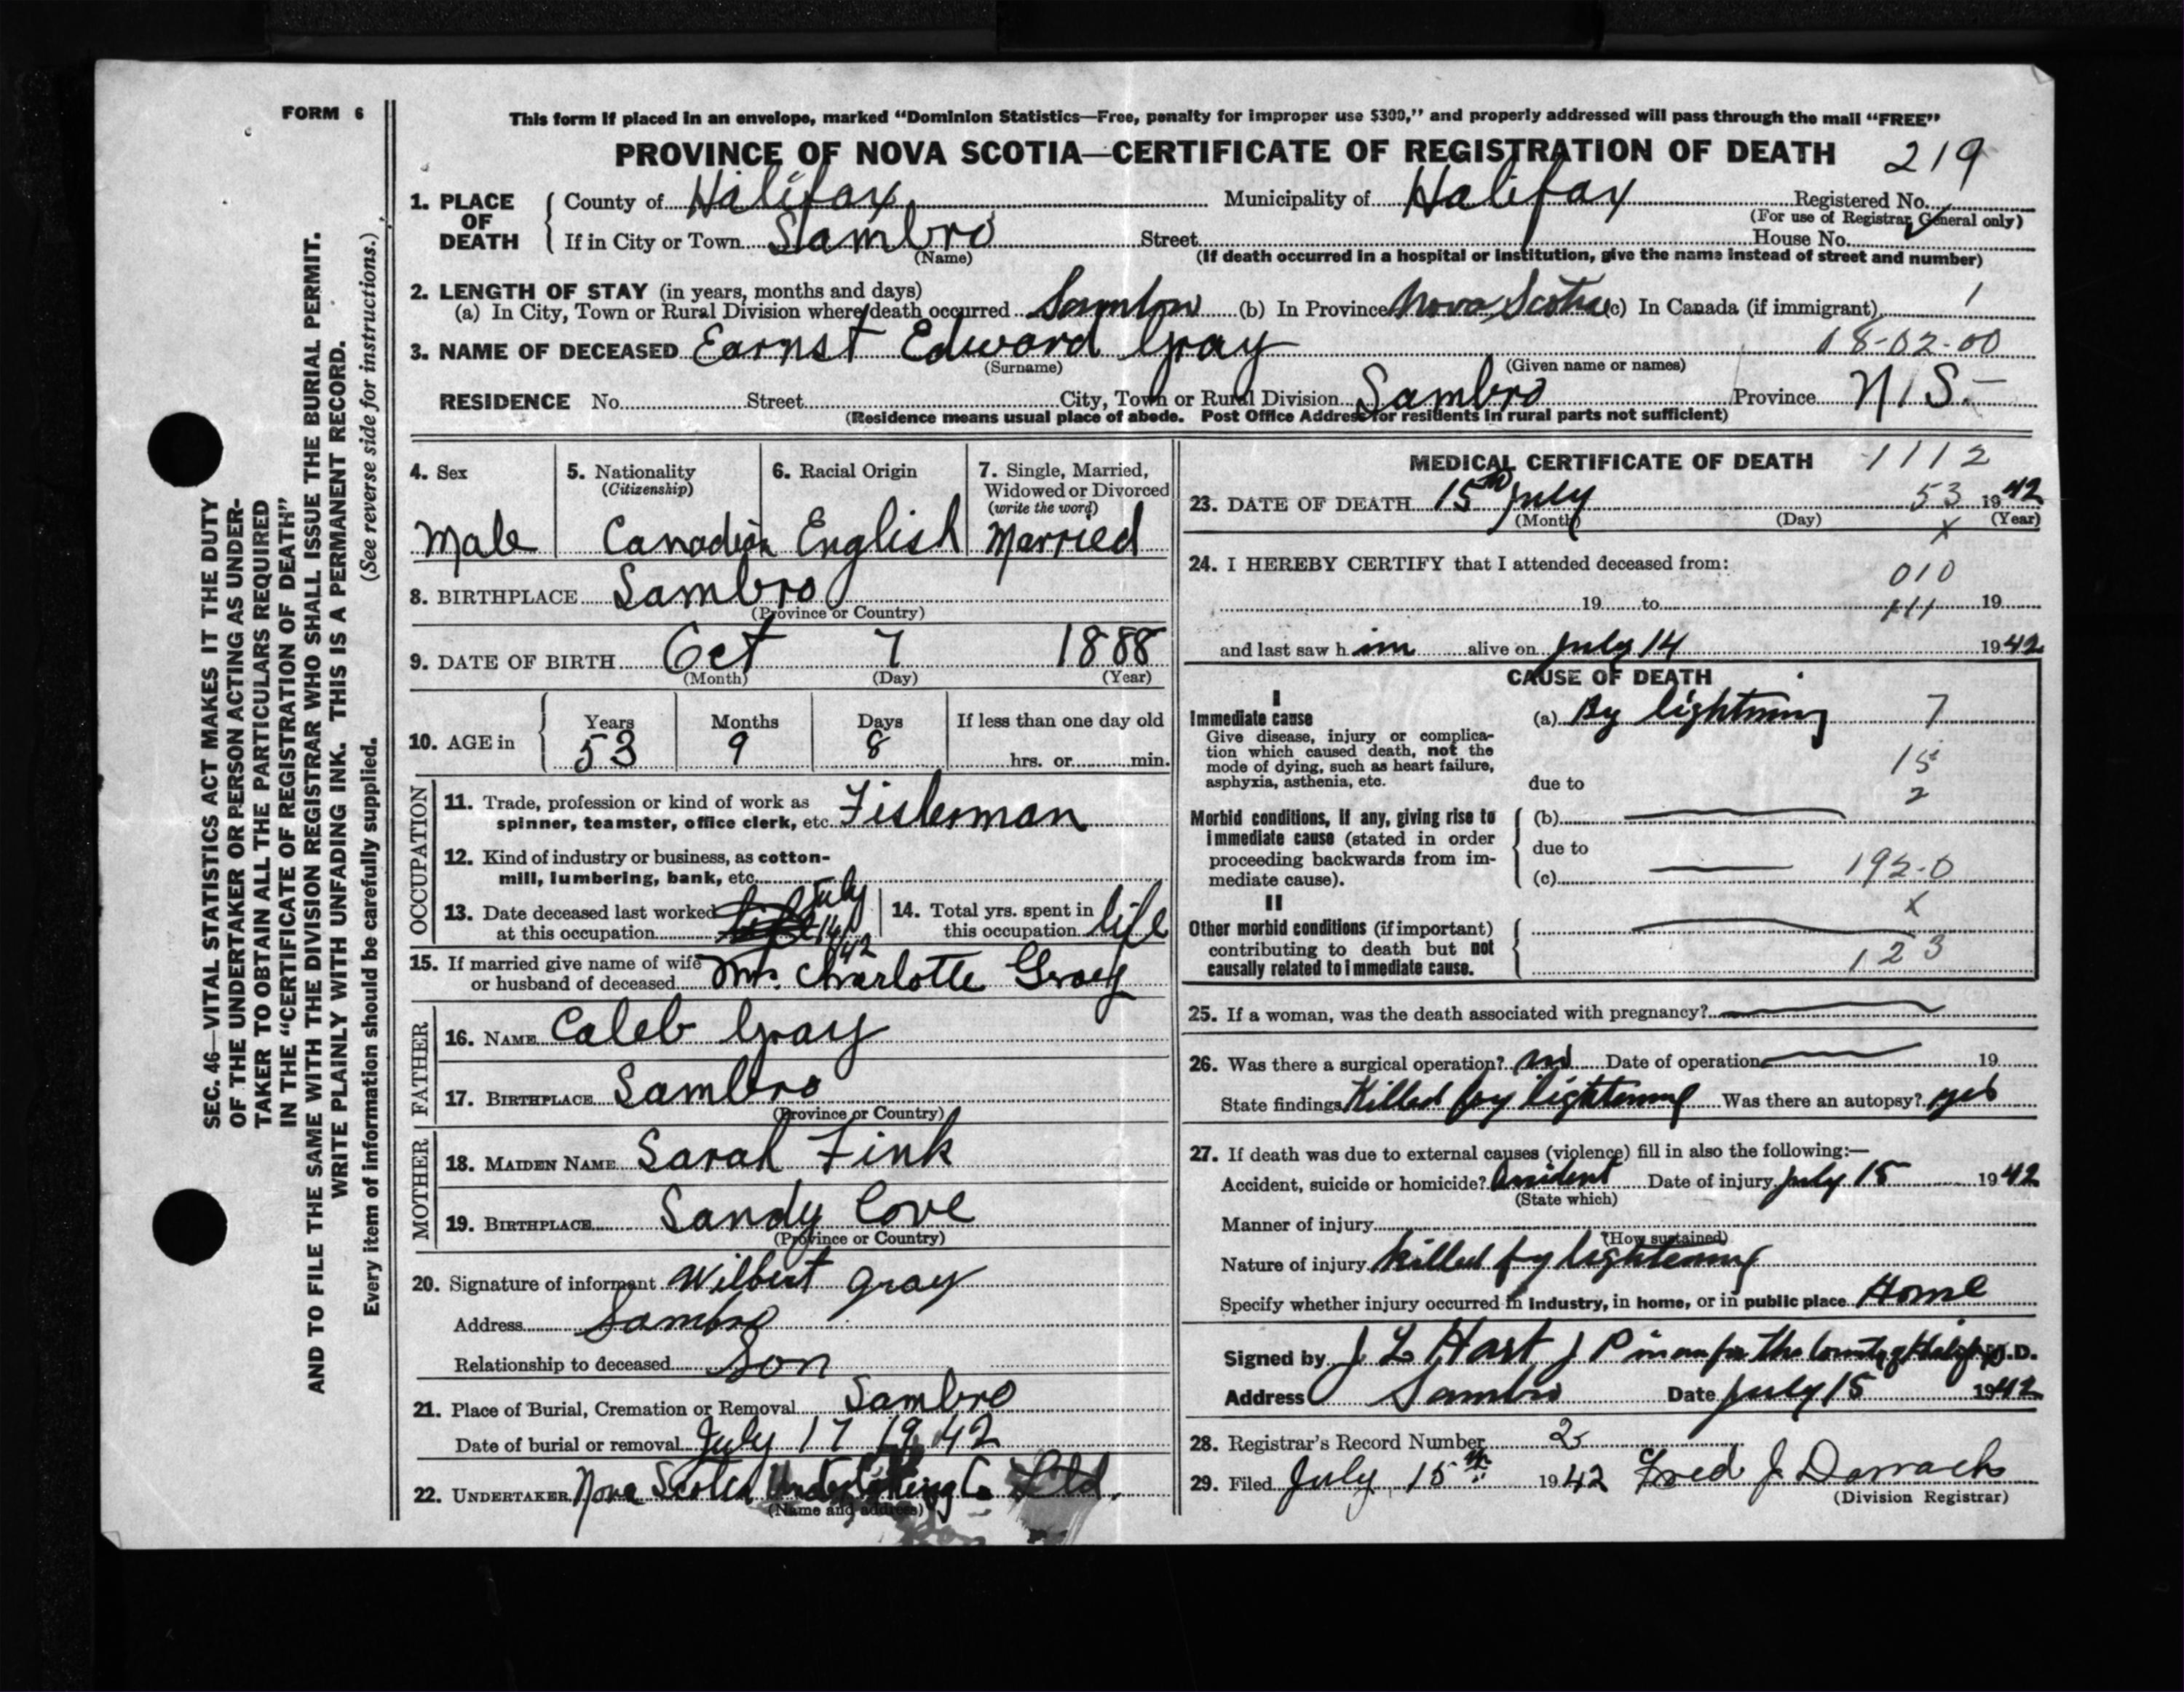 FORM 6
This form If placed in an envelope, marked "Dominion Statistics—Free, penalty for improper use $300," and properly addressed will pass through the mail "FREE"
PROVINCE OF NOVA SCOTIA—CERTIFICATE OF REGISTRATION OF DEATH 219
1. PLACE OF DEATH
County of Halifax Municipality of Halifax Registered No.
(For use of Registrar General only)
If in City or Town Sambro Street House No.
(Name) (If death occurred in a hospital or institution, give the name instead of street and number)
2. LENGTH OF STAY (in years, months and days)
(a) In City, Town or Rural Division where death occurred Sambro (b) In Province Nova Scotia (c) In Canada (if immigrant) 1
3. NAME OF DECEASED Earnst Edward Gray 18-02-00
(Surname) (Given name or names)
RESIDENCE No. Street City, Town or Rural Division Sambro Province N.S.
(Residence means usual place of abode. Post Office Address for residents in rural parts not sufficient)
4. Sex Male
5. Nationality (Citizenship) Canadian
6. Racial Origin English
7. Single, Married, Widowed or Divorced (write the word) Married
8. BIRTHPLACE Sambro
(Province or Country)
9. DATE OF BIRTH Oct 7 1888
(Month) (Day) (Year)
10. AGE in Years 53 Months 9 Days 8 If less than one day old
hrs. or min.
OCCUPATION
11. Trade, profession or kind of work as
spinner, teamster, office clerk, etc. Fisherman
12. Kind of industry or business, as cotton-
mill, lumbering, bank, etc.
13. Date deceased last worked
at this occupation July 14 1942
14. Total yrs. spent in
this occupation life
15. If married give name of wife
or husband of deceased Mrs. Charlotte Gray
FATHER
16. NAME Caleb Gray
17. BIRTHPLACE Sambro
(Province or Country)
MOTHER
18. MAIDEN NAME Sarah Fink
19. BIRTHPLACE Sandy Cove
(Province or Country)
20. Signature of informant Wilbert Gray
Address Sambro
Relationship to deceased Son
21. Place of Burial, Cremation or Removal Sambro
Date of burial or removal July 17 1942
22. UNDERTAKER Nova Scotia Undertaking Co Ltd.
(Name and address)
MEDICAL CERTIFICATE OF DEATH 1112
23. DATE OF DEATH 15th July 53 1942
(Month) (Day) (Year)
x
24. I HEREBY CERTIFY that I attended deceased from:
010
19 to 111 19
and last saw him alive on July 14 1942
CAUSE OF DEATH
I
Immediate cause
Give disease, injury or complica-
tion which caused death, not the
mode of dying, such as heart failure,
asphyxia, asthenia, etc.
(a) By lightning 7
15
due to
2
Morbid conditions, if any, giving rise to
immediate cause (stated in order
proceeding backwards from im-
mediate cause).
(b)
due to
(c) 192-0
x
II
Other morbid conditions (if important)
contributing to death but not
causally related to immediate cause.
123
25. If a woman, was the death associated with pregnancy?
26. Was there a surgical operation? no Date of operation 19
State findings Killed by lightening Was there an autopsy? yes
27. If death was due to external causes (violence) fill in also the following:—
Accident, suicide or homicide? Accident Date of injury July 15 1942
(State which)
Manner of injury
(How sustained)
Nature of injury Killed by lightening
Specify whether injury occurred in industry, in home, or in public place Home
Signed by J L Hart J P in an for the County of Halifax M.D.
Address Sambro Date July 15 1942
28. Registrar's Record Number 2
29. Filed July 15th 1942 Fred J. Darrach
(Division Registrar)
SEC. 46—VITAL STATISTICS ACT MAKES IT THE DUTY
OF THE UNDERTAKER OR PERSON ACTING AS UNDER-
TAKER TO OBTAIN ALL THE PARTICULARS REQUIRED
IN THE "CERTIFICATE OF REGISTRATION OF DEATH"
AND TO FILE THE SAME WITH THE DIVISION REGISTRAR WHO SHALL ISSUE THE BURIAL PERMIT.
WRITE PLAINLY WITH UNFADING INK. THIS IS A PERMANENT RECORD.
Every item of information should be carefully supplied. (See reverse side for instructions.)